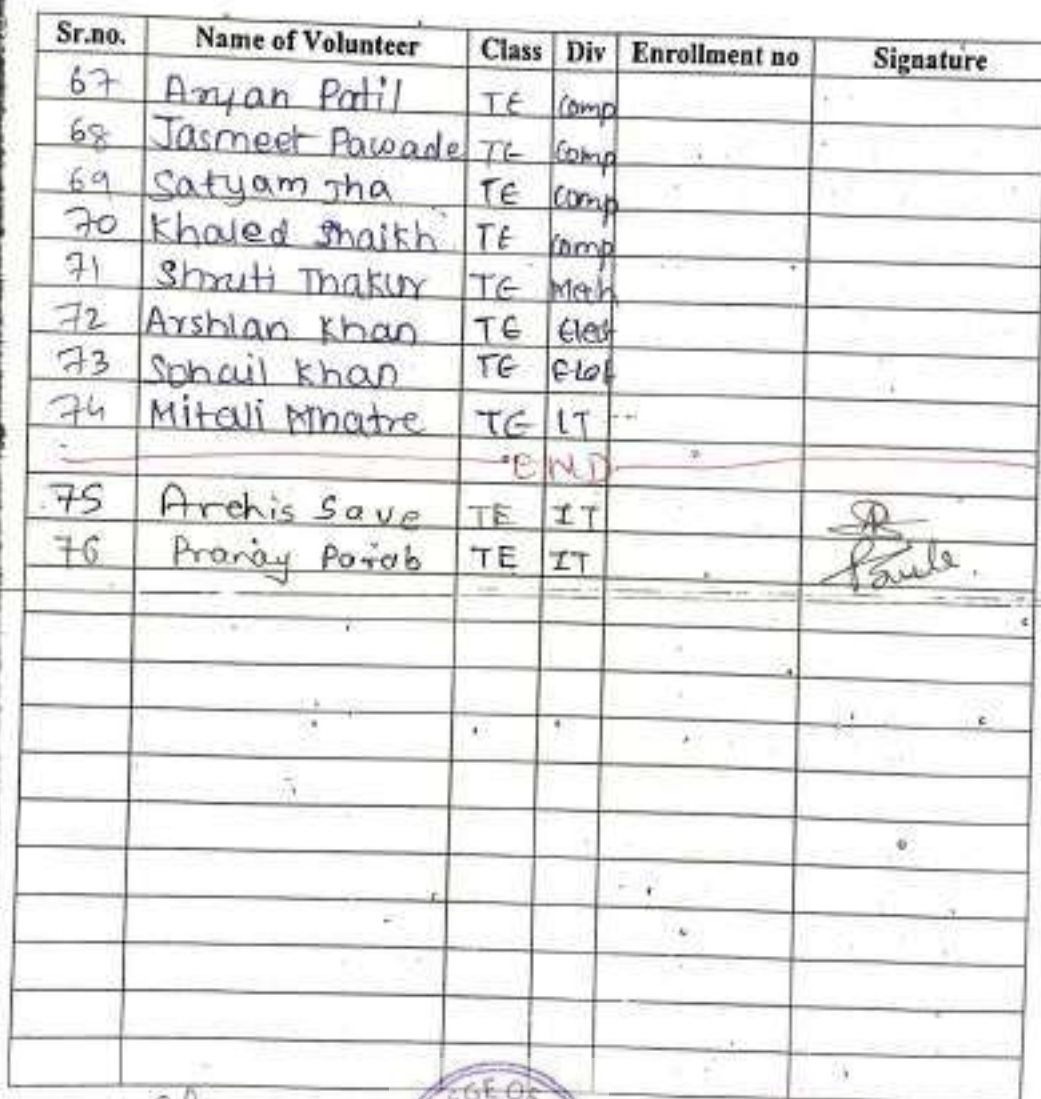 Sr.no. Name of Volunteer Class Div Enrollment no Signature
67 Aryan Patil TE Comp
68 Jasmeet Pawade TE Comp
69 Satyam Jha TE Comp
70 Khaled Shaikh TE Comp
71 Shruti Thakur TE Mech
72 Arshlan Khan TE Elect
73 Sohail Khan TE
74 Mitali Mhatre TE IT
END
75 Archis Save TE IT
76 Pranay Parab TE IT